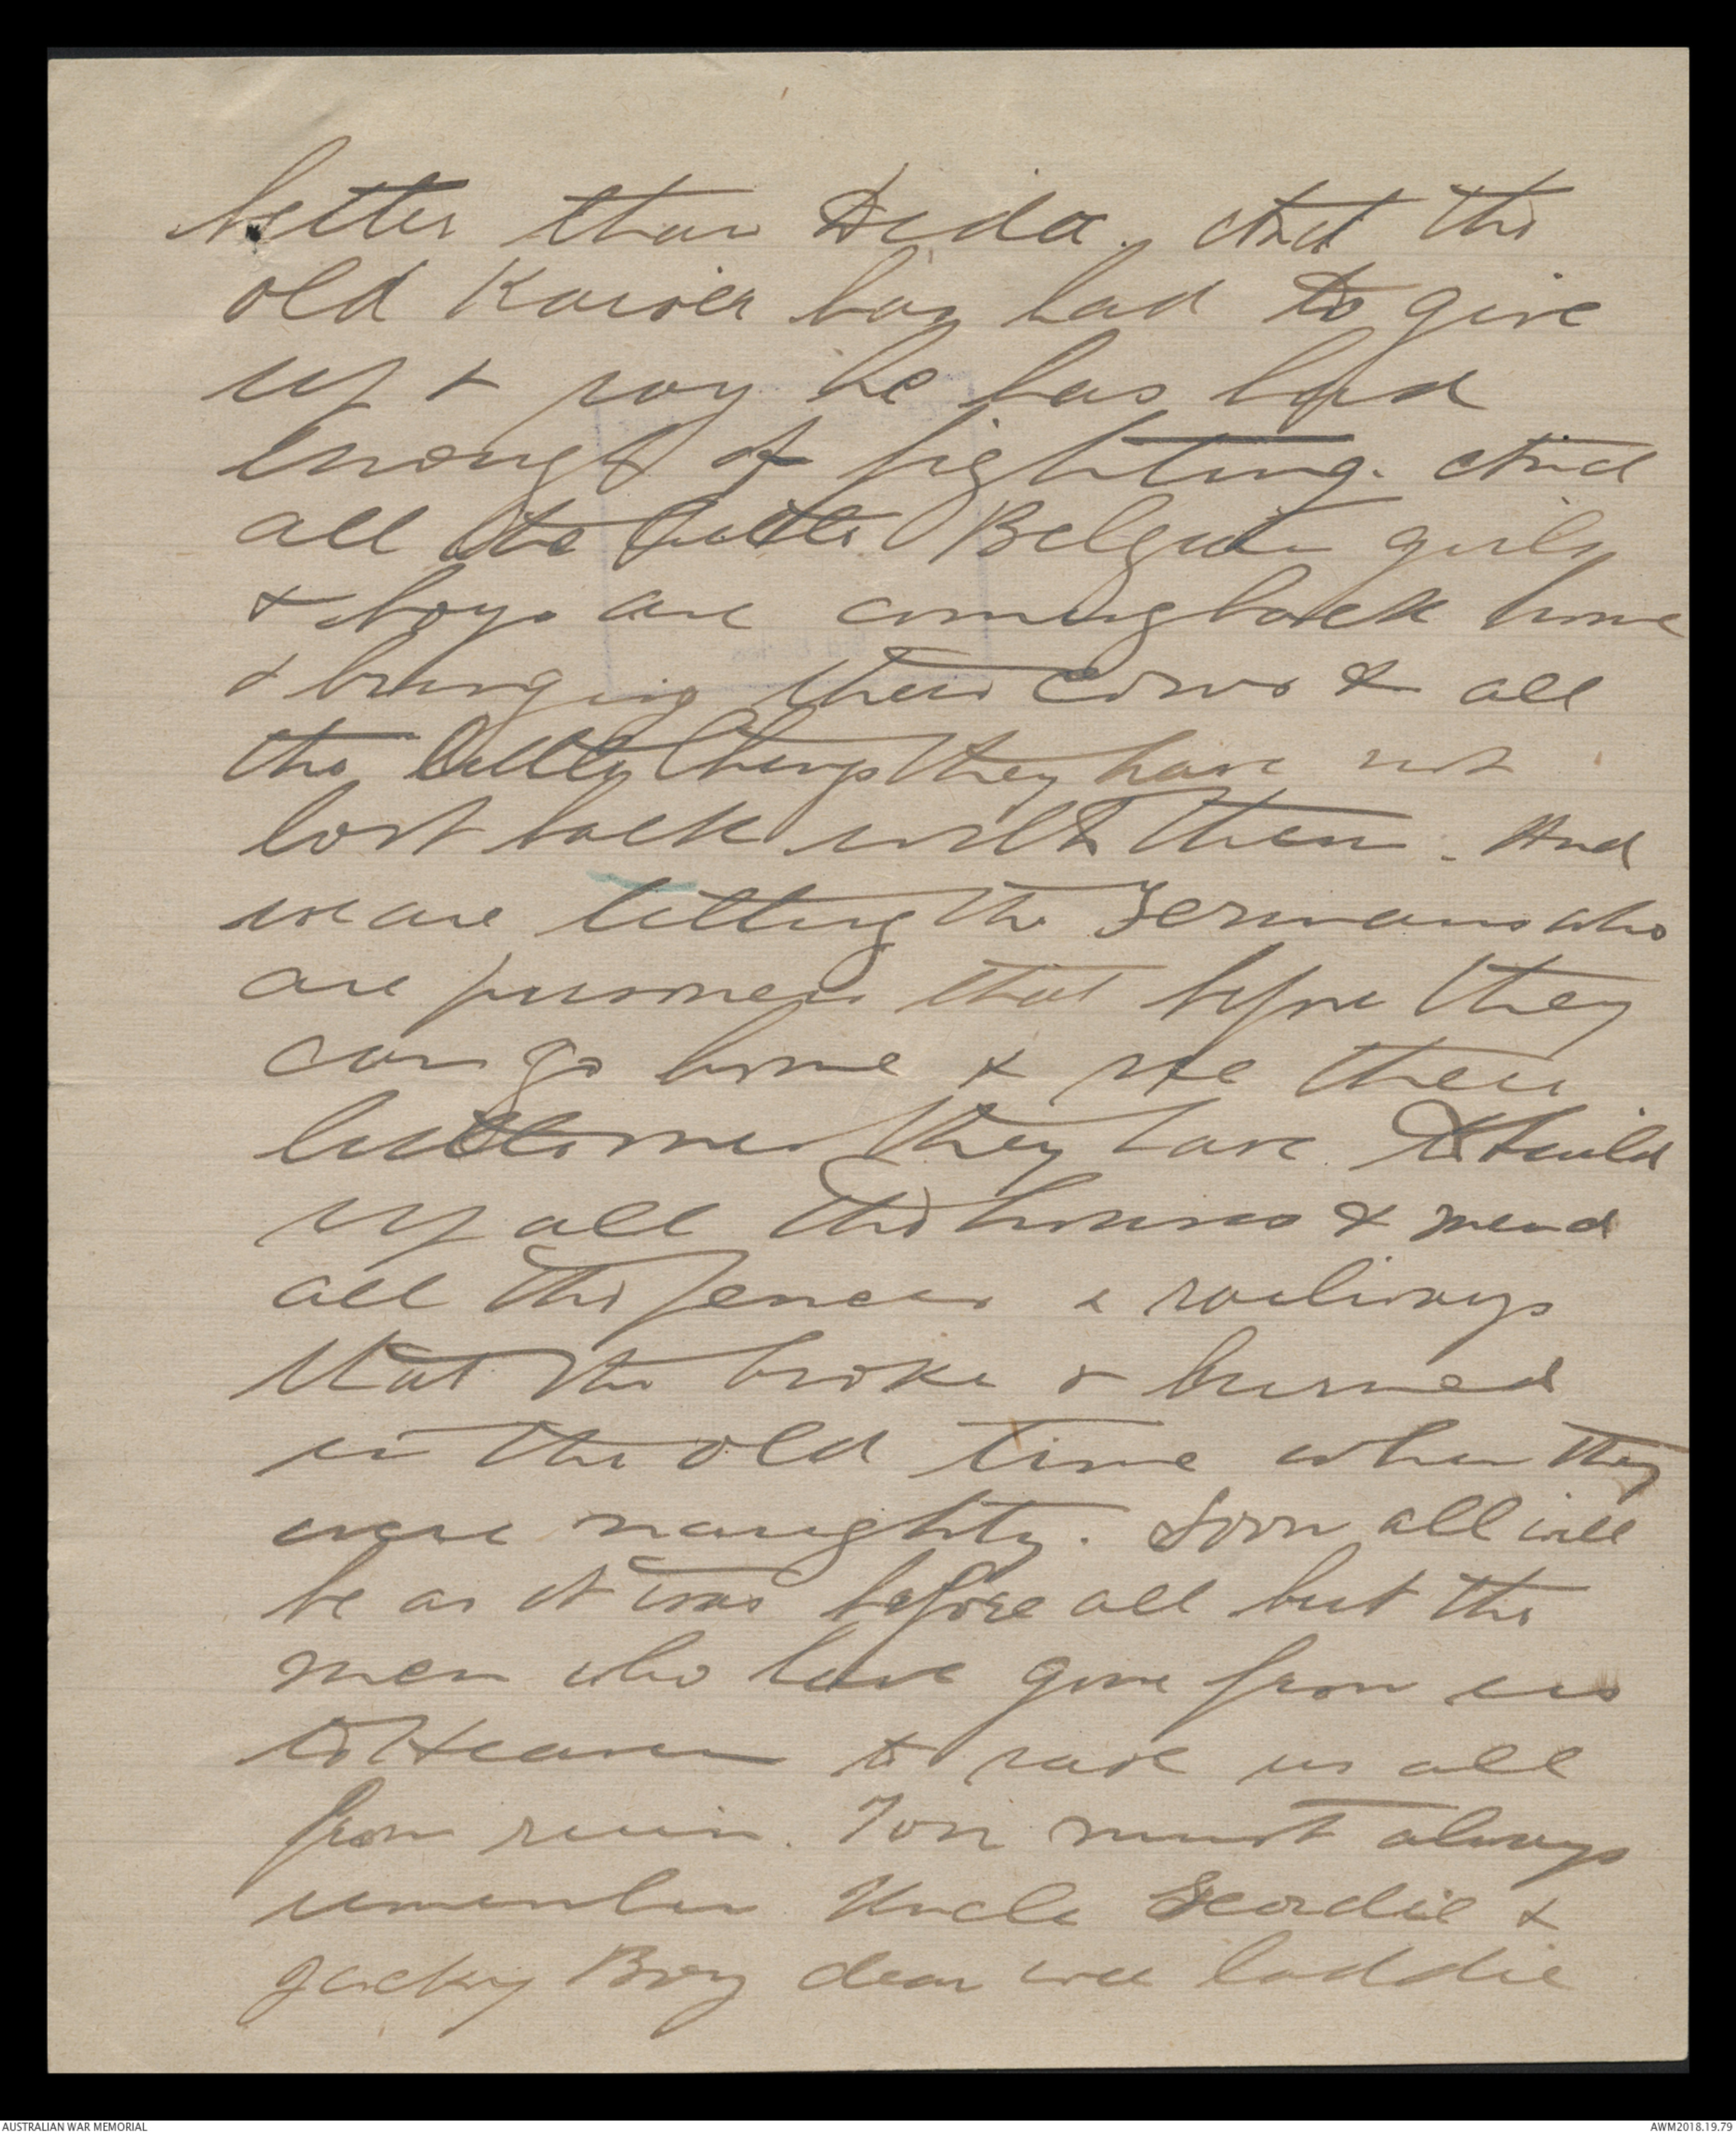 better than Dida. And the
old Kaiser has had to give
up & say he has had
enough of fighting. And
all the little Belgian girls
& boys are coming back home
& bringing their cows & all
the little things they have not
lost back with them. And
we are telling the Germans who
are prisoners that before they
can go home & see their
little ones they have to build
up all the houses & mend
all the fences & railways
that the broke & burned
in the old time when they
were naughty. Soon all will
be as it was before all but the
men who have gone from us
to Heaven to save us all
from ruin. You must always
remember Uncle Geordie &
Jacky Boy dear wee laddie
AUSTRALIAN WAR MEMORIAL
AWM2018.19.79